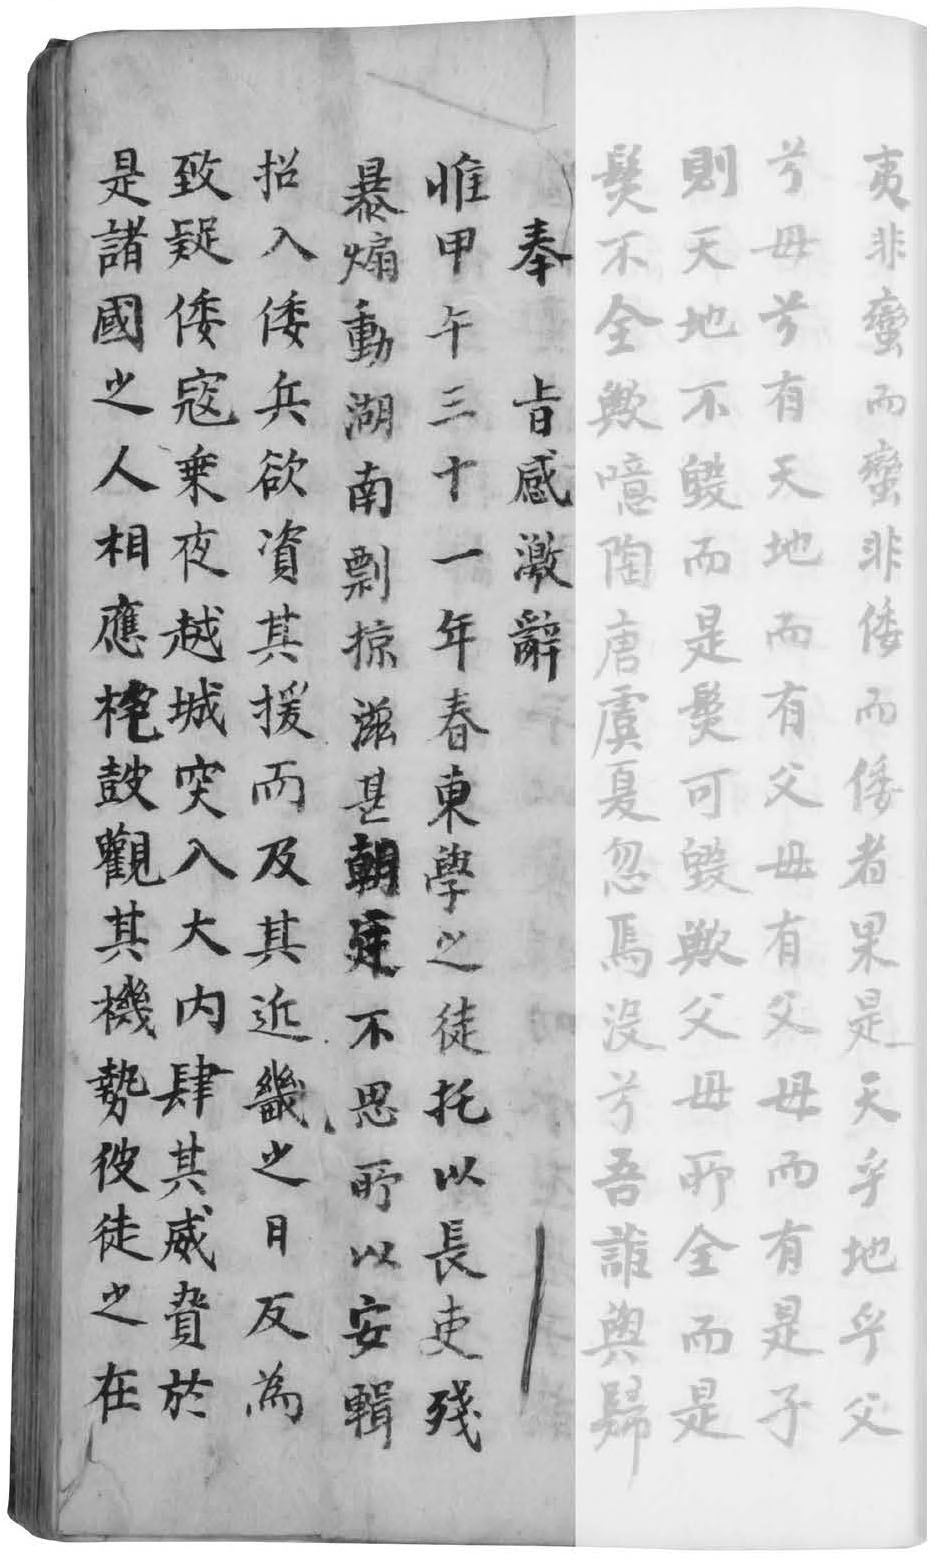 夷非蠻而蠻非倭而倭者果是天乎地乎父
兮母兮有天地而有父母有父母而有是子
則天地不毁而是髮可毁歟父母所全而是
髮不全歟噫陶唐虞夏忽焉沒兮吾誰與歸
奉 旨感激辭
惟甲午三十一年春東學之徒托以長吏殘
暴煽動湖南剽掠滋甚朝廷不思所以安輯
招入倭兵欲資其援而及其近畿之日反為
致疑倭寇乗夜越城突入大内肆其威脅於
是諸國之人相應桴鼓觀其機勢彼徒之在